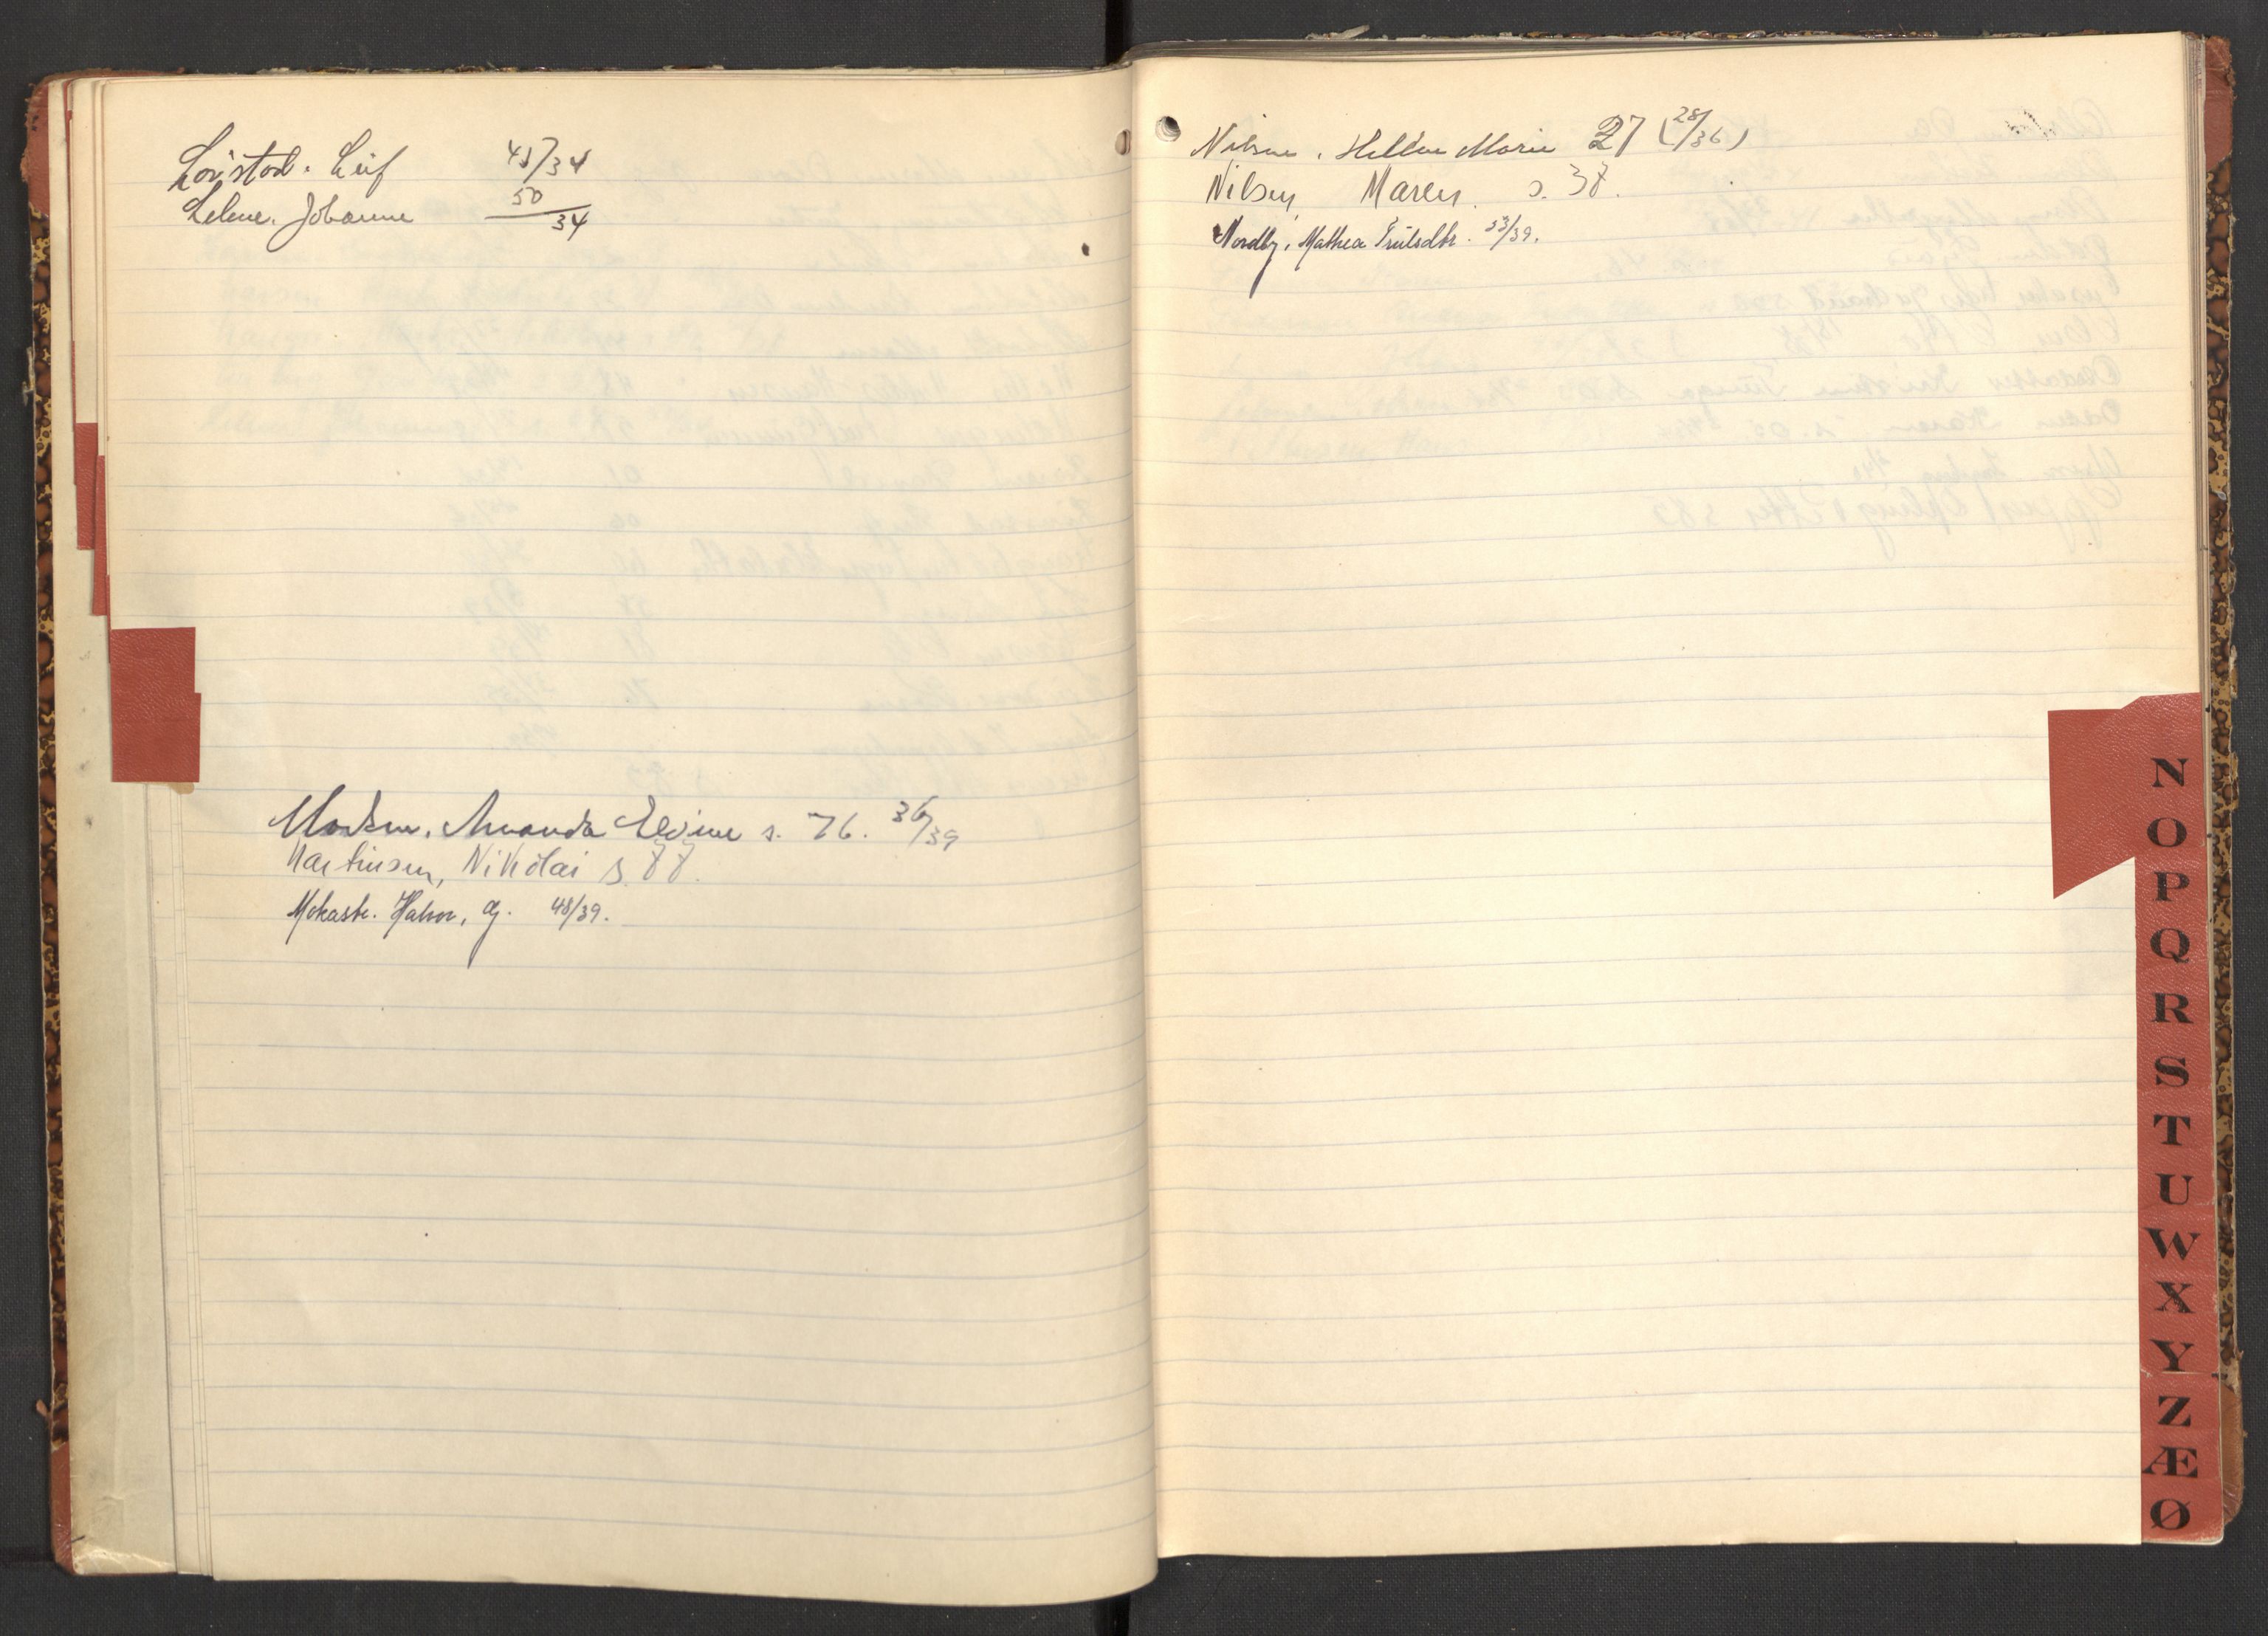 Løvstad. Leif 45/34
Lelene. Johanne 50/34
Madsen, Amanda Elvine s. 76. 36/39
Martinsen, Nikolai s. 88.
Mokastr. Halvor, G. 48/39.
Nilsen, Hellene Marie 27 (28/36)
Nilsen, Maren. s. 38.
Nordby, Mathea Trulsdtr. 53/39.
N
O
P
Q
R
S
T
U
W
X
Y
Z
Æ
Ø